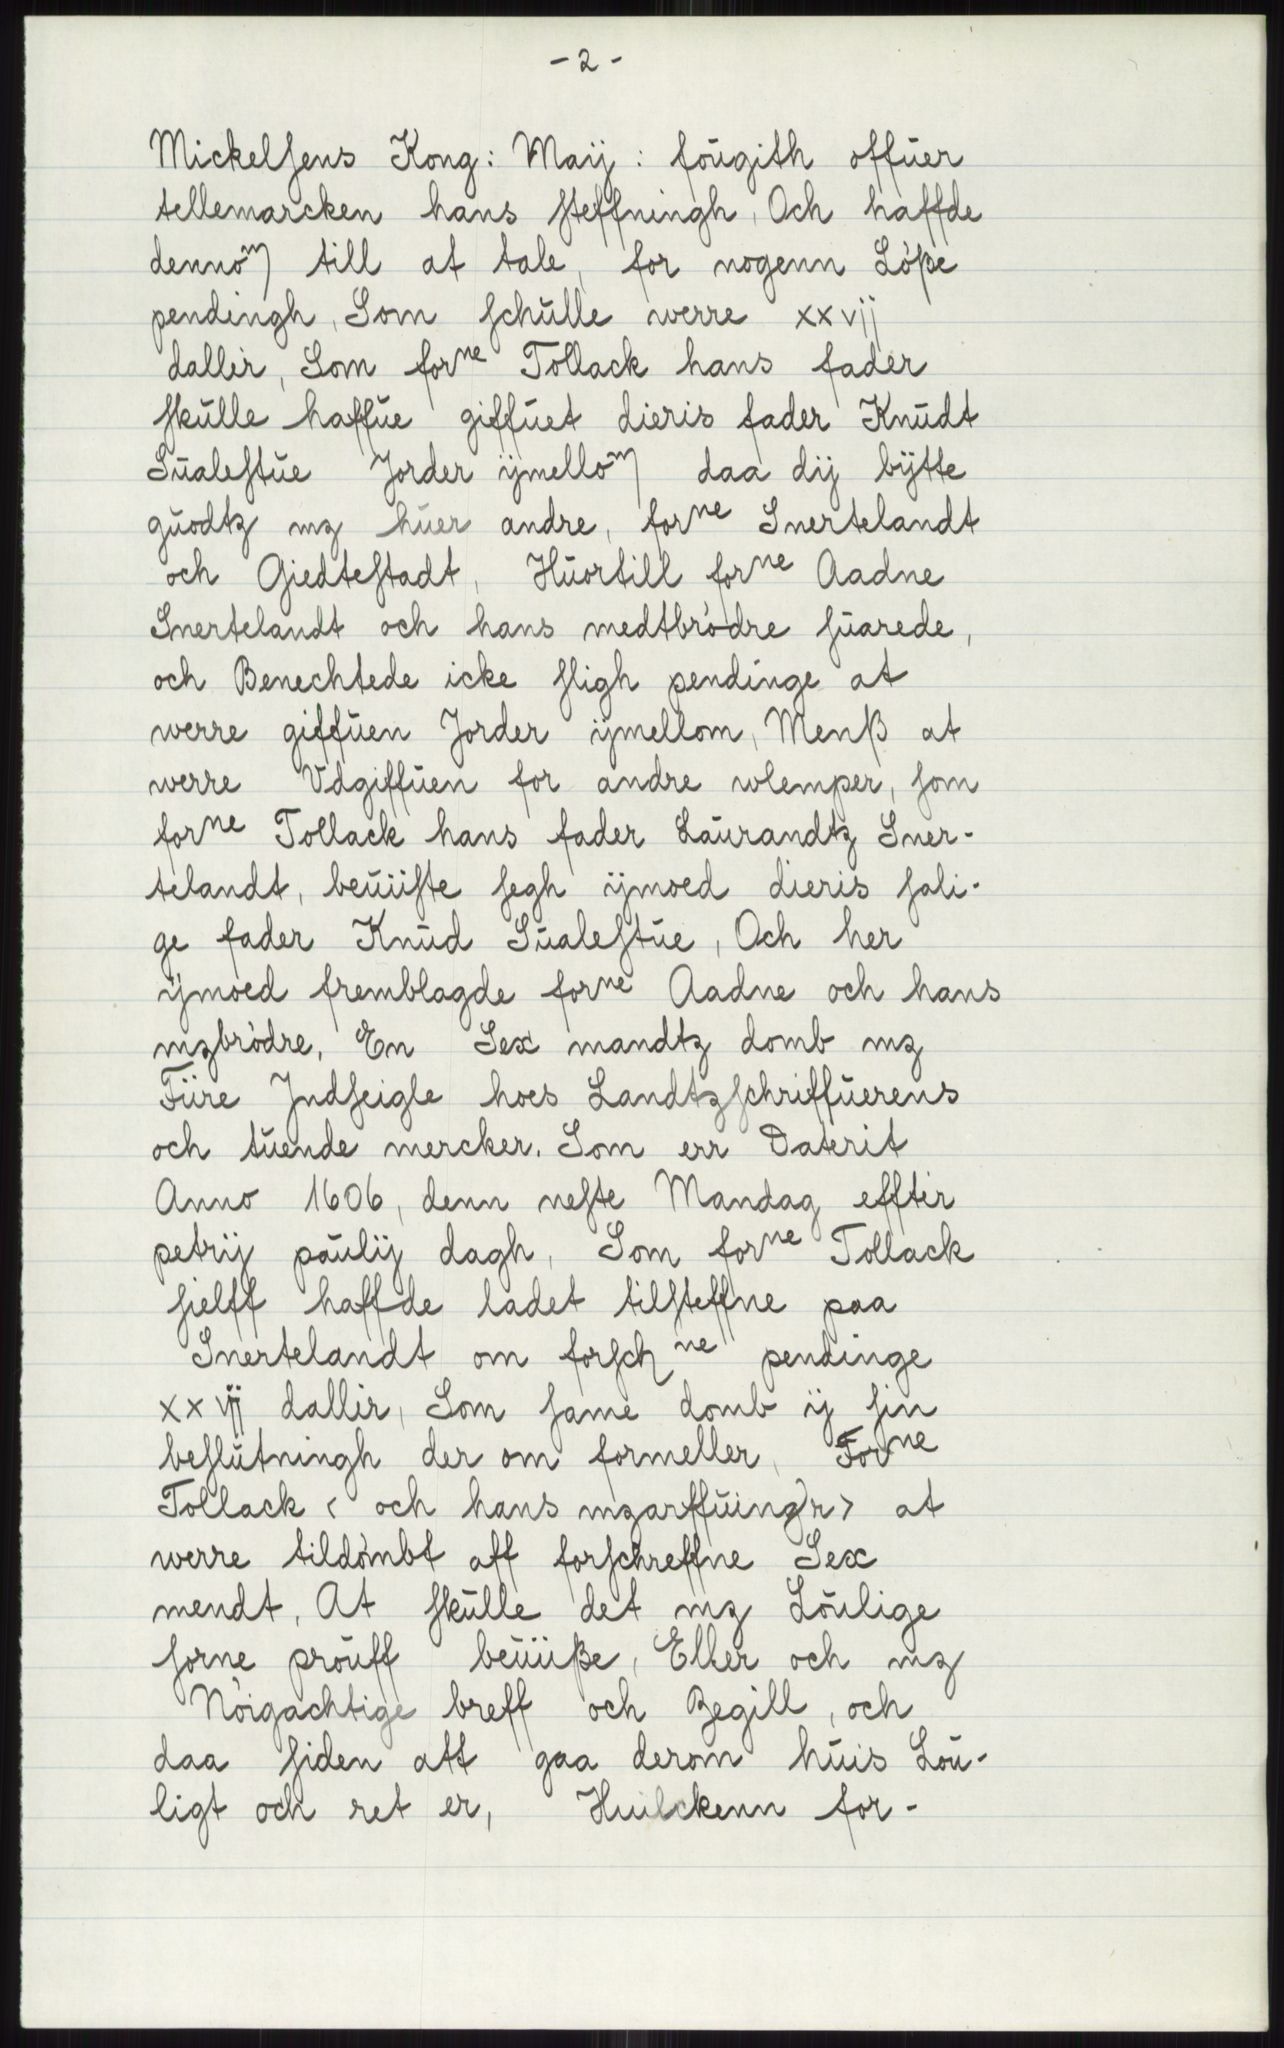 - 2 -
Mickelsens Kong: Maij: fougith offuer
tellemarcken hans steffningh, Och haffde
dennom till at tale, for nogenn Løße
pendingh, Som schulle werre xxvij
dallir, Som forne Tollack hans fader
skulle haffue giffuet dieris fader Knudt
Sualestue Jorder ijmellom daa dij bÿtte
guodtz mz huer andre, forne Snertelandt
och Giedtestadt, Huortill forne Aadne
Snertelandt och hans medtbrødre suarede,
och Benechtede icke sligh pendinge at
werre giffuen Jorder ijmellom, Menß at
werre Vdgiffuen for andre wlemper, som
forne Tollack hans fader Laurandtz Sner-
telandt, beuiiste segh ijmoed dieris sali-
ge fader Knud Sualestue, Och her
ijmoed fremblagde forne Aadne och hans
mzbrødre, En Sex mandtz domb mz
Fiire Jndseigle hoes Landtzschriffuerens
och tuende mercker. Som err Daterit
Anno 1606, denn neste Mandag effter
petrij paulij dagh, Som forne Tollack
sielff haffde ladet tilsteffne paa
Snertelandt om forschne pendinge
xxvij dallir, Som same domb ij sin
beslutningh der om formeller, Forne
Tollack < och hans mzarffuingr > at
werre tildømbt aff forschreffne Sex
mendt, At skulle det mz Loulige
sorne prouff beuiiße, Eller och mz
Nøigachtige breff och Begill, och
daa siden att gaa derom huis Lou-
ligt och ret er, Huilckenn for-